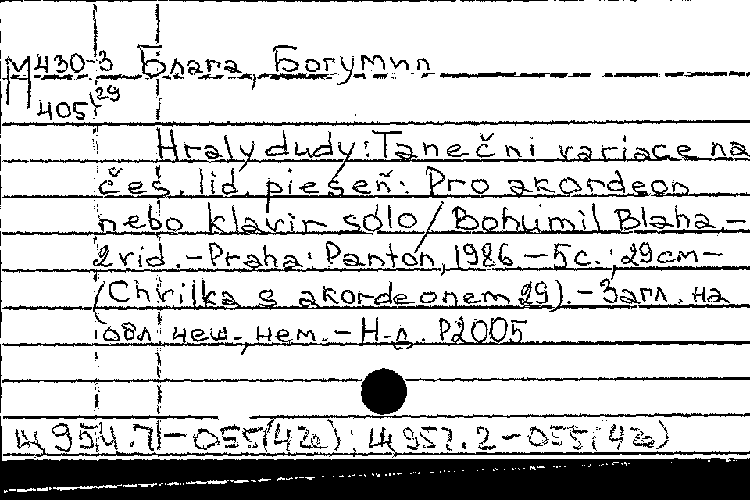 М430-3 Блага, Богумил
405 29
Hraly dudy: Taneční variace na
čes. lid. pieseň: Pro akordeon
nebo klavír sólo / Bohumil Blaha. –
2 vid. – Praha: Panton, 1986 – 5 с.; 29 см –
(Chvilka s akordeonem 29). – Загл. на
обл. чеш., нем. – Н.д. P2005
Щ954.7 – 055(4Че); Щ957.2 – 055(4Че)